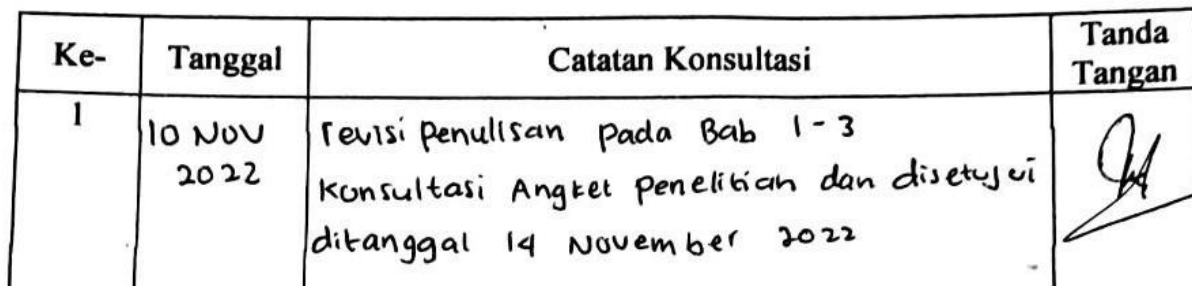 Ke- Tanggal Catatan Konsultasi Tanda Tangan
1 10 NOV 2022 revisi penulisan pada Bab 1-3
Konsultasi Angket penelitian dan disetujui
ditanggal 14 November 2022